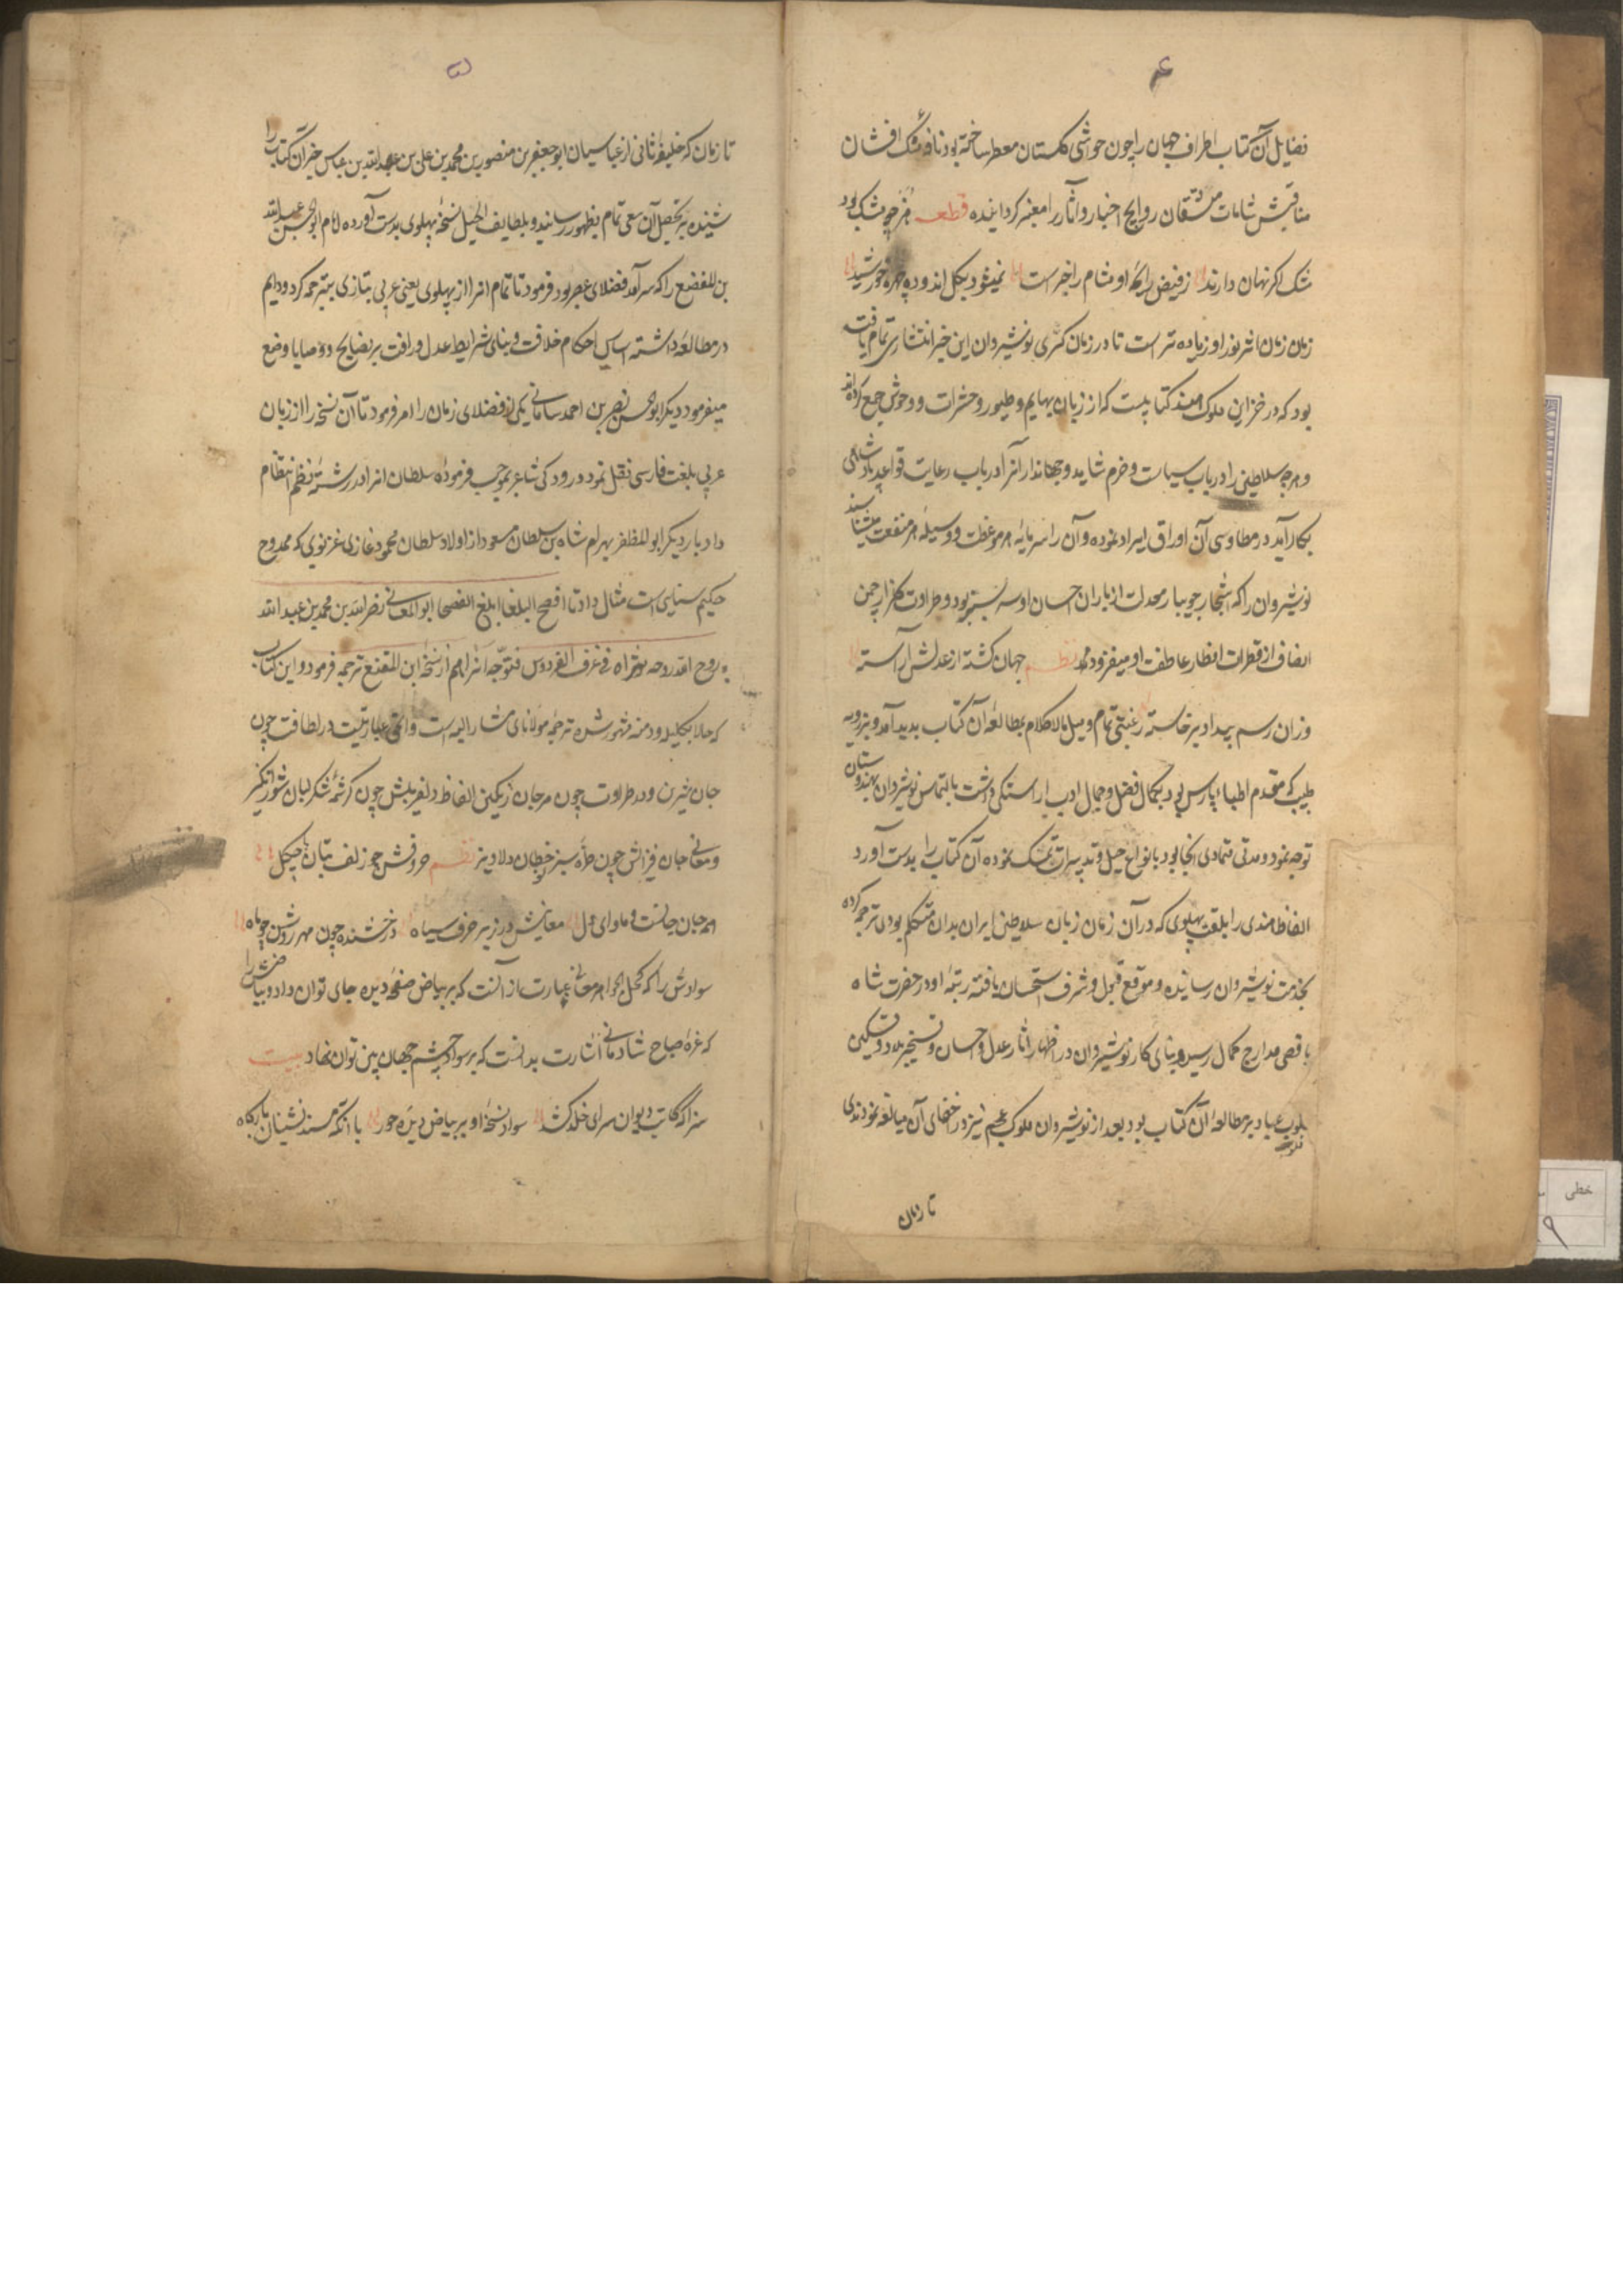 ۴
فضایل آن کتاب اطراف جهان را چون حواشی گلستان معطر ساخته بود و نافه مشک افشان
مناقبش مشامات مستنشقان روایح اخبار و آثار را معنبر گردانیده قطعه هنر چو مشک بود
مشک اگر نهان دارند ز فیض رایحهٔ او مشام را خبر است نمیشود بگل اندوده چهرهٔ خورشید
زمان زمان اثر نور او زیاده تر است تا در زمان کسری نوشیروان این خبر انتشاری تمام یافته
بود که در خزاین ملوک هند کتابیست که از زبان بهایم و طیور و حشرات و وحوش جمع کرده اند
و هرچه سلاطین را در باب سیاست و حزم شاید و جهاندارانرا در باب رعایت قواعد پادشاهی
بکار آید در مطاوی آن اوراق ایراد نموده و آن را سرمایه هر موعظت و وسیله هر منفعت میشناسند
نوشیروان را که اشجار جویبار معدلت از باران احسان او سرسبز بود و طراوت گلزار چمن
انصاف از قطرات امطار عاطفت او میفزود نظم جهان گشته از عدلش آراسته
وزان رسم بیداد برخاسته رغبتی تمام و میل مالاکلام بمطالعهٔ آن کتاب پدید آمد و برزویه
طبیب که مقدم اطباء پارس بود و بکمال فضل و جمال ادب آراستگی داشت بالتماس نوشیروان بهندوستان
توجه نمود و مدتی متمادی آنجا بود بانواع حیل و تدبیرات تمسک نموده آن کتاب را بدست آورد
الفاظ هندی را بلغت پهلوی که در آن زمان زبان سلاطین ایران بدان متکلم بودی ترجمه کرده
بخدمت نوشیروان رسانیده و موقع قبول و شرف استحسان یافته رتبهٔ او در حضرت شاه
باقصی مدارج کمال رسید و بنای کار نوشیروان در اظهار آثار عدل و احسان و تسخیر بلاد و تسکین
قلوب عباد بر مطالعهٔ آن کتاب بود بعد از نوشیروان ملوک عجم نیز در اخفای آن مبالغه نمودندی
قلوب
تا زمان
۵
تا زمان که خلیفهٔ ثانی از عباسیان ابو جعفر بن منصور بن محمد بن علی بن عبدالله بن عباس خبر آن کتاب را
شنیده بر تحصیل آن سعی تمام بظهور رسانید و بلطایف الحیل نسخهٔ پهلوی بدست آورده امام ابو الحسن عبدالله
بن المقنع را که سرآمد فضلای عصر بود فرمود تا تمام آنرا از پهلوی یعنی عربی بتازی ترجمه کرد و دایم
در مطالعه داشته اساس احکام خلافت و بنای شرایط عدل و رافت بر نصایح و وصایا وضع
میفرمود دیگر ابوالحسن نصر بن احمد سامانی یکی از فضلای زمان را امر فرمود تا آن نسخه را از زبان
عربی بلغت فارسی نقل نمود و رودکی شاعر بموجب فرمودهٔ سلطان آنرا در رشتهٔ نظم انتظام
داد بار دیگر ابوالمظفر بهرام شاه بن سلطان مسعود از اولاد سلطان محمود غازی غزنوی که ممدوح
حکیم سنایی است مثال داد تا افصح البلغا ابلغ الفصحا ابوالمعالی نصرالله بن محمد بن عبدالله
روح الله روحه فی غرف الفردوس فتوحه آنرا هم از نسخهٔ ابن المقنع ترجمه فرمود و این کتاب
که حالا بکلیله و دمنه مشهور شده ترجمهٔ مولانای مشار الیه است و الحق عبارتیست در لطافت چون
جان شیرین و در طراوت چون مرجان رنگین الفاظ دلفریبش چون کرشمهٔ شکرلبان شورانگیز
و معانی جان فزایش چون طرهٔ سبز خطان دلاویز نظم حروفش چو زلف بتان چگل
همه جان جانست و ماوای دل معانیش در زیر حرف سیاه درخشنده چون مهر و روشن چو ماه
سوادش را که کحل الجواهر معانی عبارت از آنست که بر بیاض صفحهٔ دیده جای توان داد و بیاضش را
که غرهٔ صباح شادمانی اشارت بدانست که بر سواد چشم جهان بین توان نهاد بیت
سزد که کاتب دیوان سرای خلد کشد سواد نسخهٔ او بر بیاض دیدهٔ حور با آنکه مسند نشینان بارگاه
خطی
۹